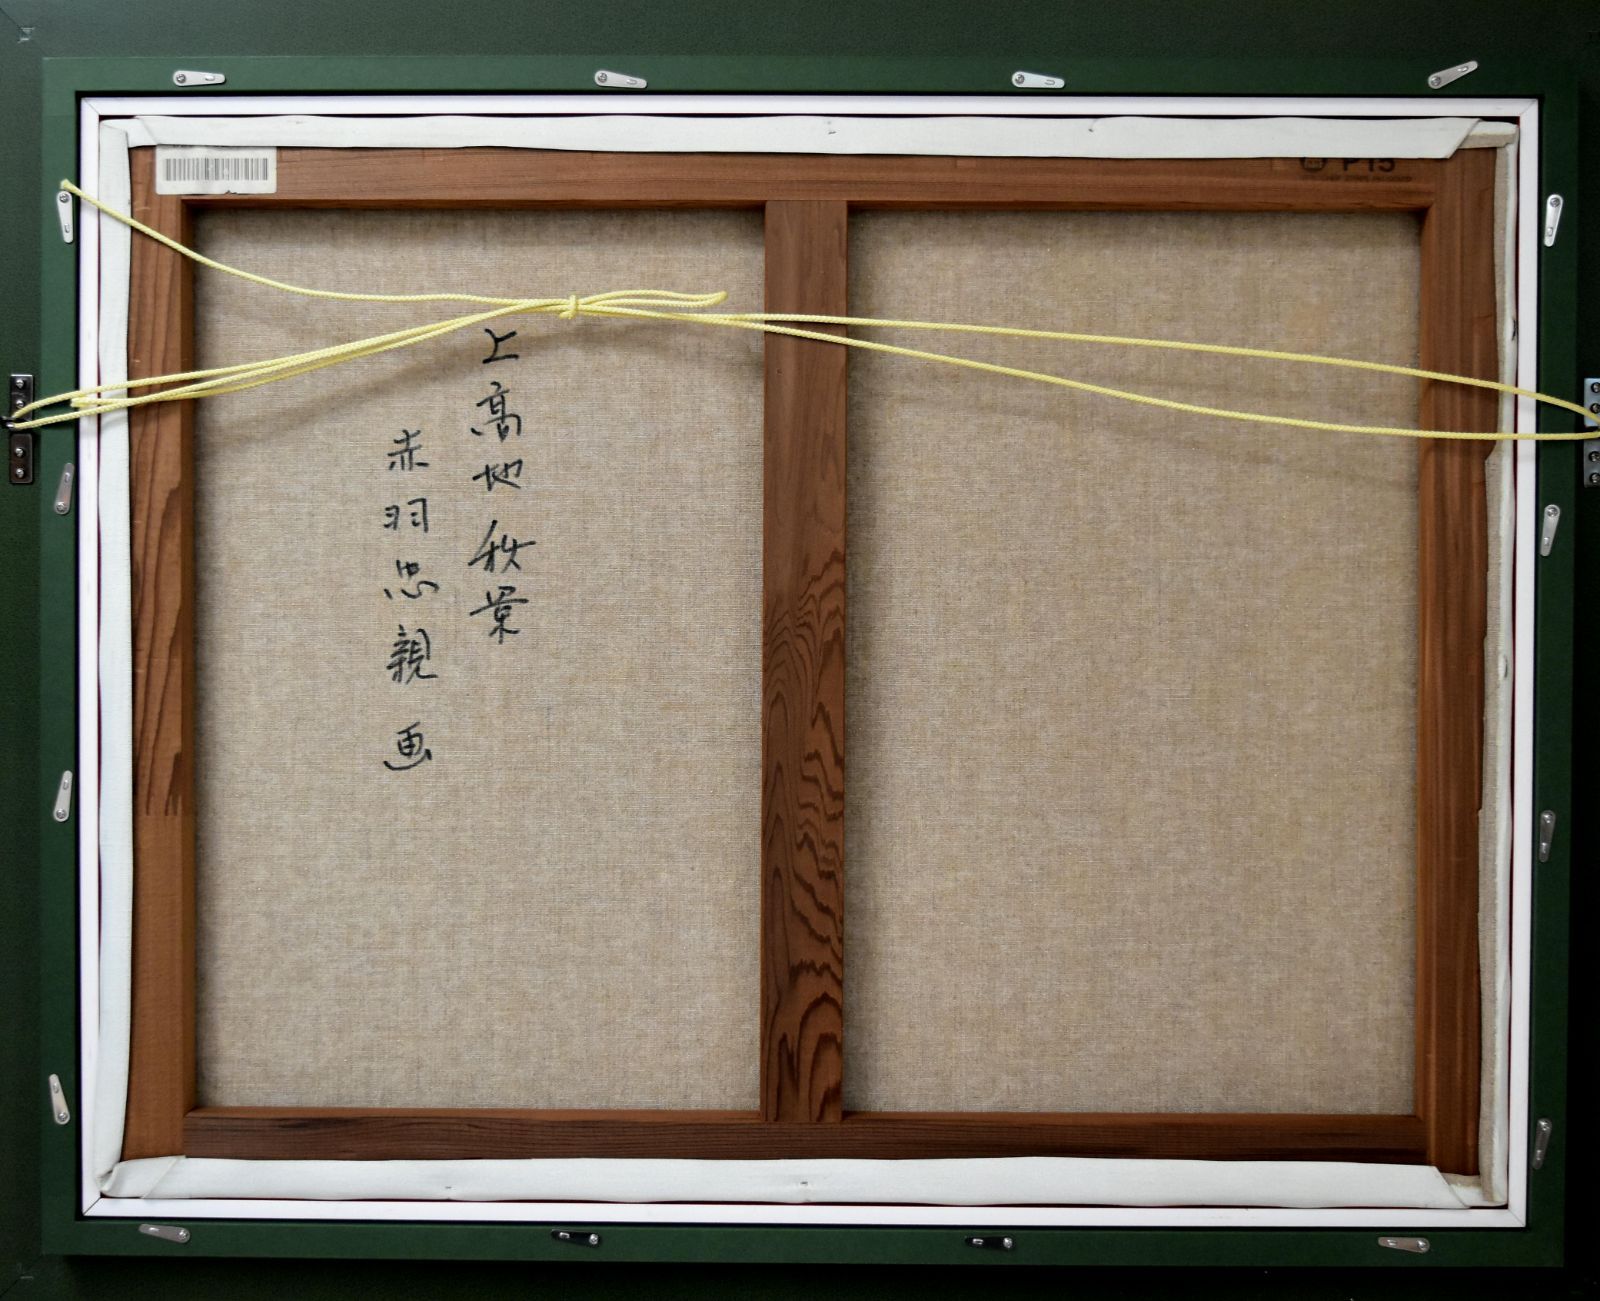 上高地秋景
赤羽忠親 画
P15